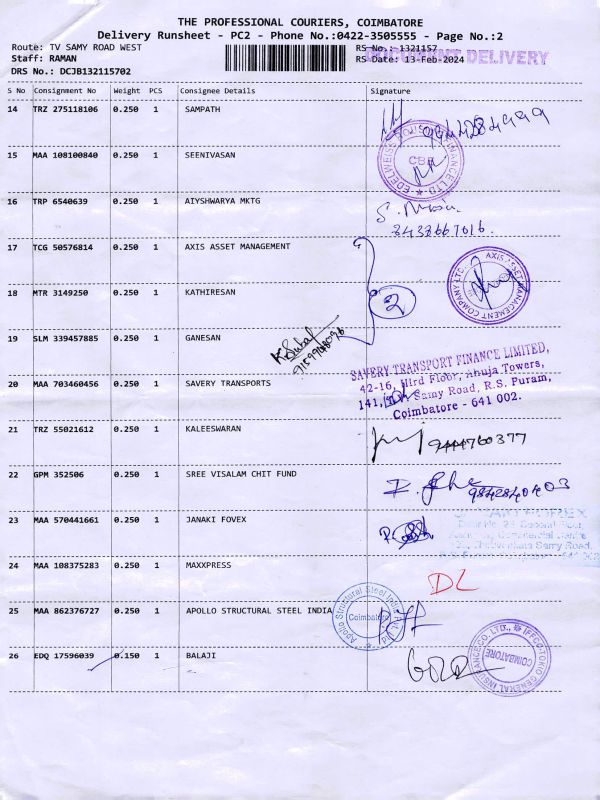 THE PROFESSIONAL COURIERS, COIMBATORE
Delivery Runsheet - PC2 - Phone No.:0422-3505555 - Page No.:2
Route: TV SAMY ROAD WEST
Staff: RAMAN
DRS No.: DCJB132115702
RS No.: 1321157
RS Date: 13-Feb-2024
DOCUMENT DELIVERY
S No Consignment No Weight PCS Consignee Details Signature
14 TRZ 275118106 0.250 1 SAMPATH
EDELWEISS HOUSING FINANCE LTD ★
CBE
15 MAA 108100840 0.250 1 SEENIVASAN
16 TRP 6540639 0.250 1 AIYSHWARYA MKTG
17 TCG 50576814 0.250 1 AXIS ASSET MANAGEMENT
2
AXIS ASSET MANAGEMENT COMPANY LTD.
18 MTR 3149250 0.250 1 KATHIRESAN
19 SLM 339457885 0.250 1 GANESAN
SAVERY TRANSPORT FINANCE LIMITED,
42-16, IIIrd Floor, Ahuja Towers,
141, Samy Road, R.S. Puram,
Coimbatore - 641 002.
20 MAA 703460456 0.250 1 SAVERY TRANSPORTS
21 TRZ 55021612 0.250 1 KALEESWARAN
9444760377
22 GPM 352506 0.250 1 SREE VISALAM CHIT FUND
23 MAA 570441661 0.250 1 JANAKI FOVEX
Samy Road,
24 MAA 108375283 0.250 1 MAXXPRESS
DL
25 MAA 862376727 0.250 1 APOLLO STRUCTURAL STEEL INDIA
Apollo Structural Steel India Pvt. Ltd
Coimbatore
26 EDQ 17596039 0.150 1 BALAJI
IFFCO-TOKIO GENERAL INSURANCE CO. LTD.,
COIMBATORE